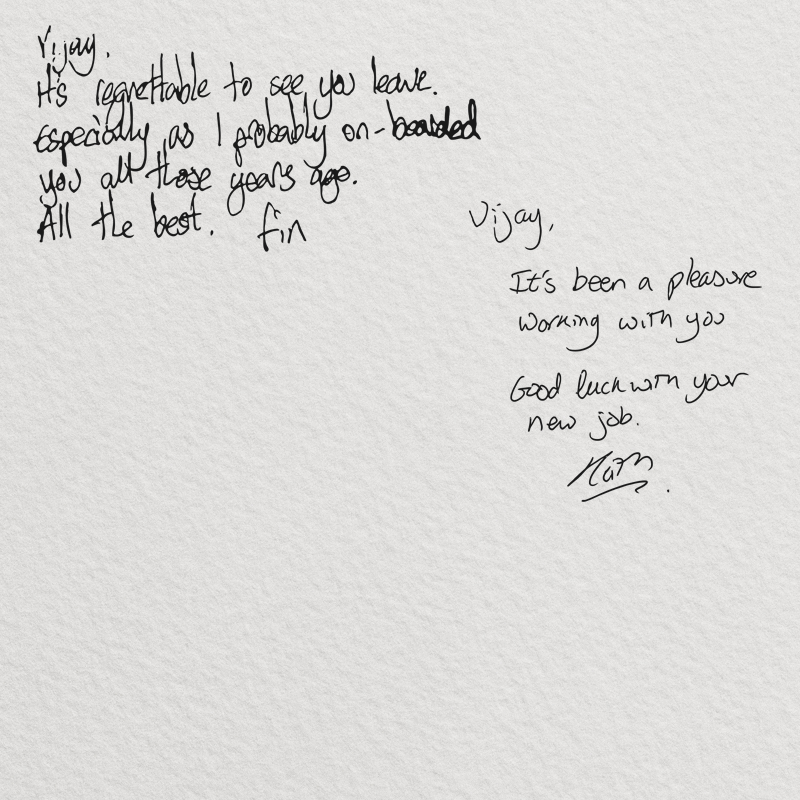 Vijay.
It's regrettable to see you leave.
Especially as I probably on-boarded
you all those years ago.
All the best. fin
Vijay,
It's been a pleasure
working with you
Good luck with your
new job.